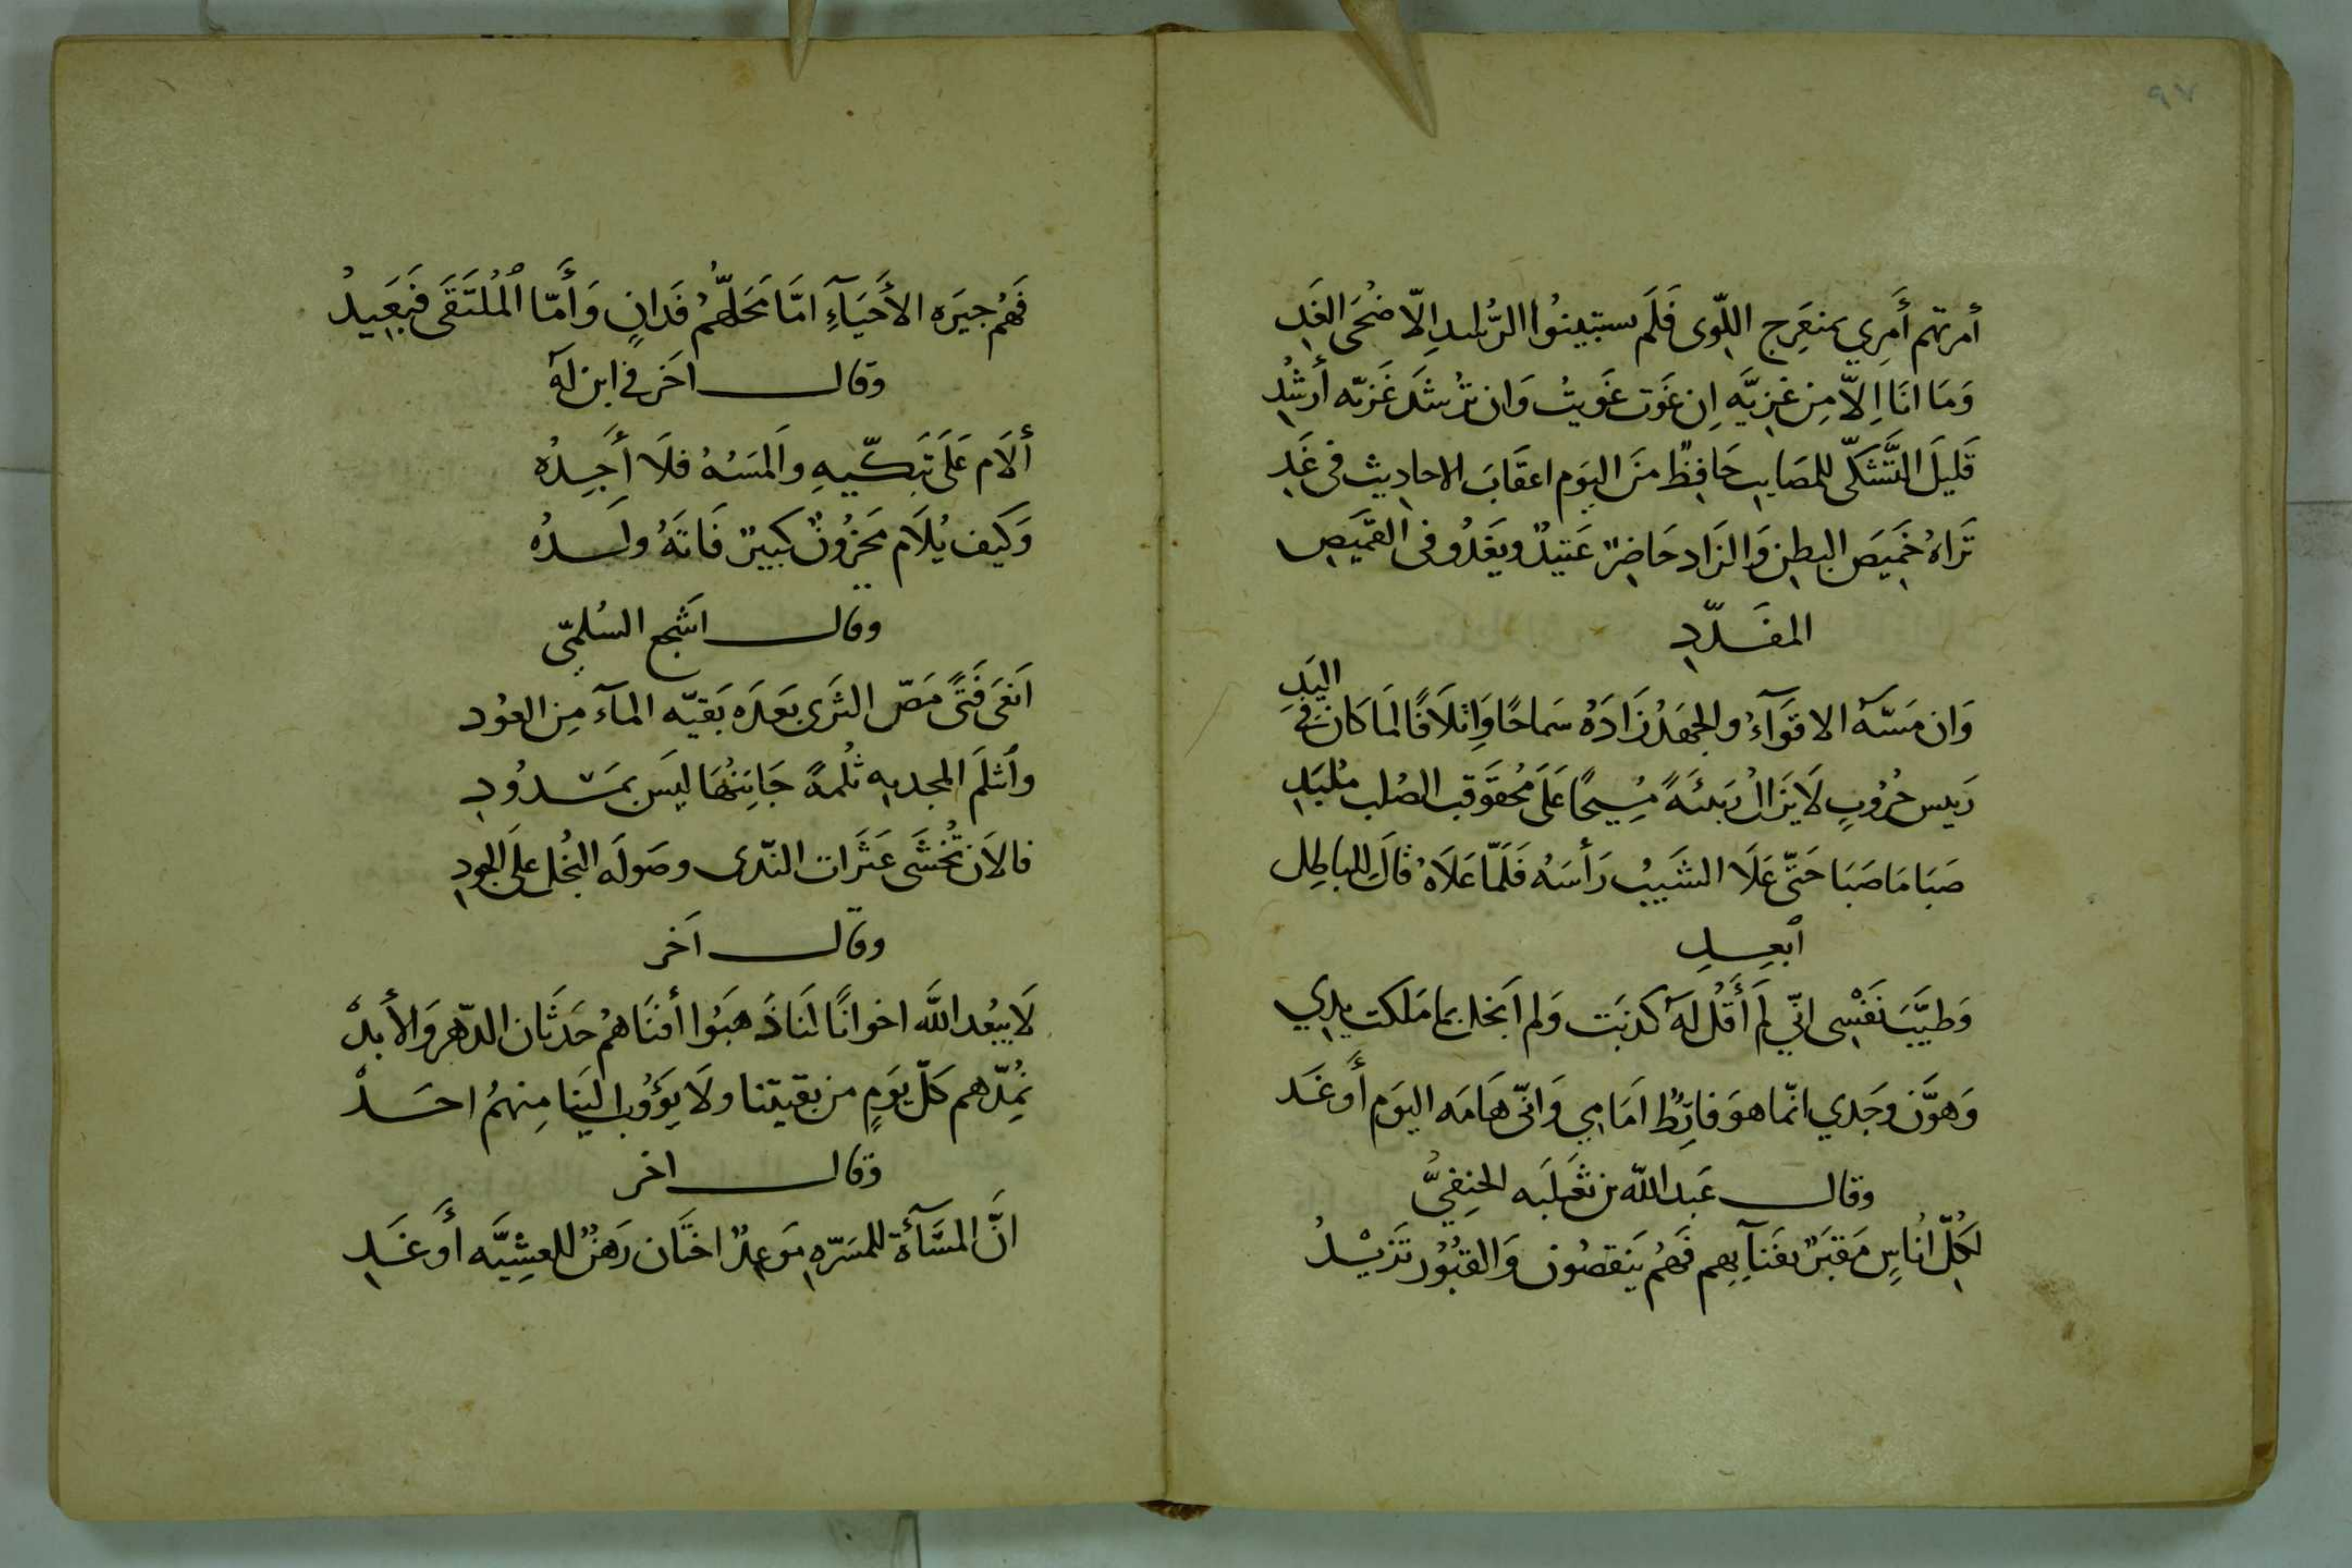 ٩٧
أمرتهم أَمري بمنعَرِج اللّوى فَلَم ستبينُوا الرّشد اِلّا ضُحَى الغَدِ
وَمَا انَا اِلّا مِن غَزيَّه اِن غَوَت غوَيتُ وَان تَرشُد غَزيّه أَرشُدِ
قَليلَ التَّشكّى للمصَايبِ حَافِظٌ منَ اليَوم اعقَابَ الاحاديث فى غَدِ
تَراهُ خَميصَ البطنِ وَالزَاد حَاضِرٌ عَتيدٌ ويَغدُو فى القمَيصِ
المقَدّدِ
وَان مَسّهُ الاقوَآءُ والجَهدُ زَادَهُ سَماحًا وَاِتلَافًا لمَا كَانَ فِى اليَدِ
رَييس حُرُوبٍ لَا يَزالُ رَبيئَةً مُسِيحًا عَلَى مُحقَوقِب الصُلب مُلبَدِ
صَبَا مَا صَبَا حَتّى عَلَا الشَيبُ رَأسَهُ فَلَمّا عَلَاهُ قالَ للباطِل
ابعِدِ
وَطيَّبَ نَفْسِى انّي لَم أَقُل لَهُ كَذبَت وَلم اَبخل بما مَلَكت يدِي
وَهوَّن وجَدي انّما هوَ فارِطٌ امَامِي وَانّى هَامَه اليَوم أَو غَد
وقال عَبد الله بن ثعَلَبه الحنِفيُّ
لكُلّ انُاسٍ مَقبَرٌ بفَنآيِهِم فَهُم يَنقصُون وَالقبُوُر تَزيْدُ
فَهُم جيَره الأَحيَآءِ امّا مَحَلّهُم فَدانٍ وَأَمّا اَلمُلتَقَى فَبَعِيدُ
وقال اخَر فى ابن لَهُ
أُلَام عَلَى تَبَكّيهِ وَالمسَهُ فلَا أَجِدُه
وَكَيف يُلَام مَحزُونٌ كبَيرٌ فَاتَهُ ولَدُه
وقال اشَجع السُلمِيّ
اَنعَى فَتًى مَصّ الثَرَى بَعدَه بَقيّه المآء مِن العوُد
وأثلَم المجد به ثُلمةً جَانِبُهَا ليَس بمَسدُودِ
فالآن تُخشَى عَثَرات النّدى وصَولَه البُخل عَلى الجودِ
وقال آخر
لَا يبُعد اللَّه اخوانًا لنَا ذَهَبوُا أفنَاهمُ حَدثَان الدّهر وَالأبدُ
نُمِدّهم كَلّ يَومٍ من بقيتنا ولَا يَؤُوب اليَنا مِنهمُ احَدُ
وقال اخر
انَّ المسَآءة للمسَرّهِ مَوعِدٌ اختَان رَهنٌ للعشِيَّه أَو غَدِ